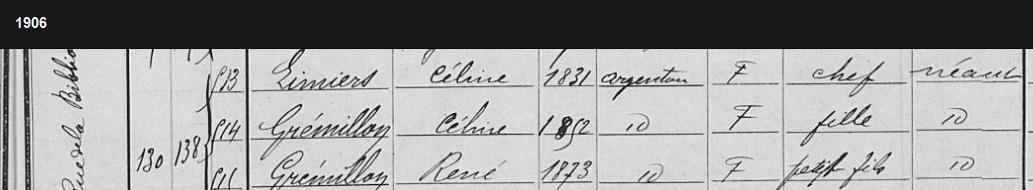 1906
Rue de la Biblio
513 Limiers Céline 1831 argenton F chef néant
514 Grémillon Céline 1852 id F fille id
130 138 515 Grémillon René 1873 id F petit fils id